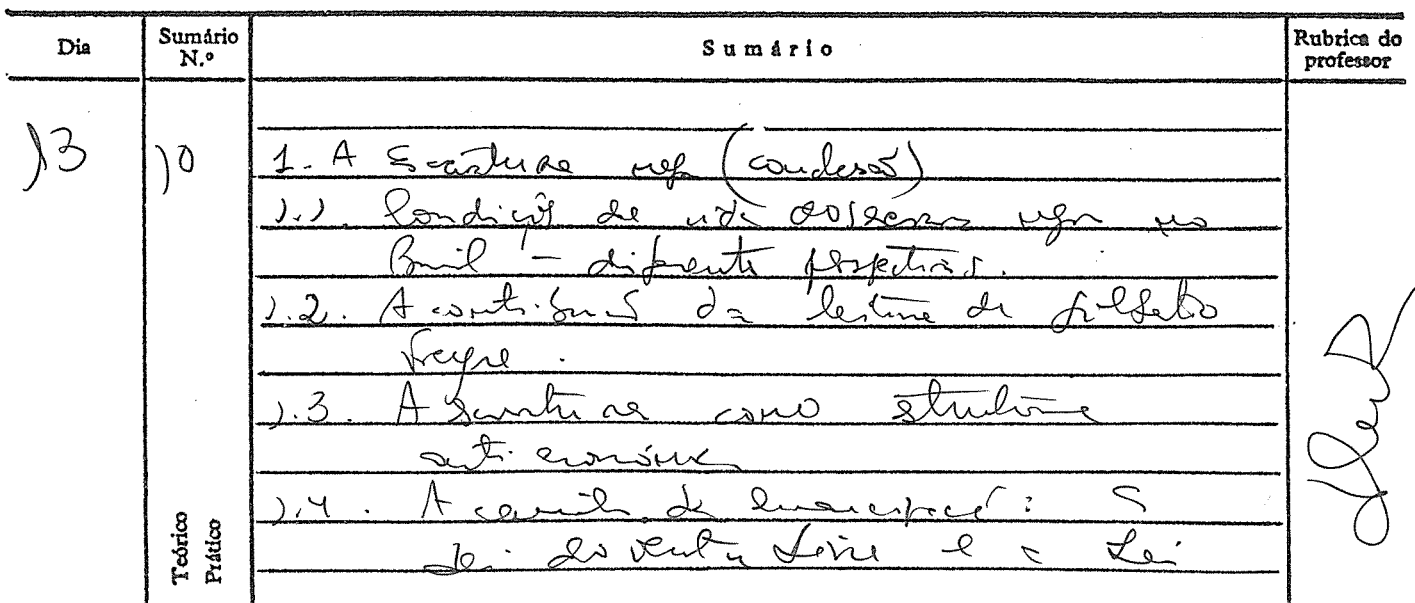 Dia
Sumário N.º
Sumário
Rubrica do professor
13
10
1. A escravatura negra (conclusão)
1.1. Condições de vida dos escravos negros no
Brasil - diferentes perspectivas.
1.2. A contribuição da leitura de Gilberto
Freyre.
1.3. A escravatura como estrutura
anti-económica
1.4. A caminho da emancipação: a
Lei do Ventre Livre e a Lei
Teórico
Prático